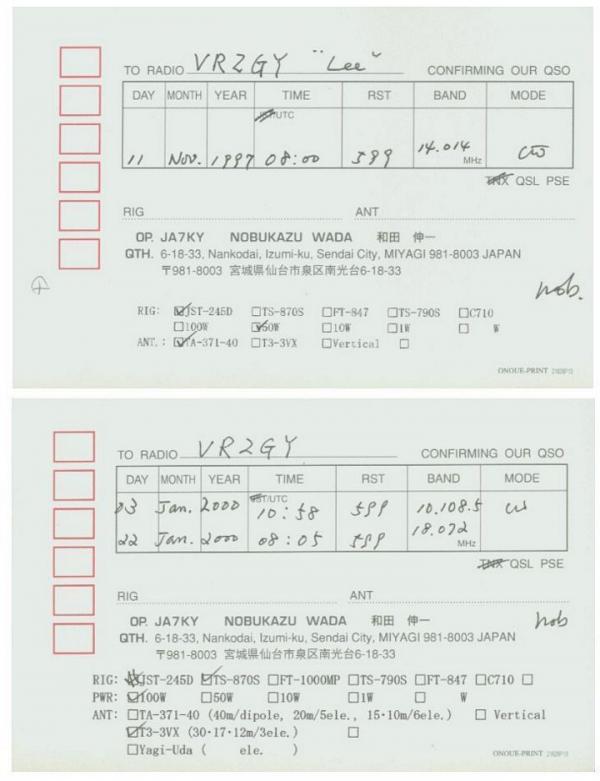 TO RADIO VR2GY "Lee" CONFIRMING OUR QSO
DAY MONTH YEAR TIME RST BAND MODE
JST/UTC
11 Nov. 1997 08:00 599 14.014 MHz CW
TNX QSL PSE
RIG ANT
OP. JA7KY NOBUKAZU WADA 和田 伸一
QTH. 6-18-33, Nankodai, Izumi-ku, Sendai City, MIYAGI 981-8003 JAPAN
〒981-8003 宮城県仙台市泉区南光台6-18-33
nob.
RIG: ☑JST-245D ☐TS-870S ☐FT-847 ☐TS-790S ☐C710
☐100W ☑50W ☐10W ☐1W ☐ W
ANT.: ☑TA-371-40 ☐T3-3VX ☐Vertical ☐
ONOUE-PRINT
TO RADIO VR2GY CONFIRMING OUR QSO
DAY MONTH YEAR TIME RST BAND MODE
JST/UTC
03 Jan. 2000 10:58 599 10.108.5 CW
22 Jan. 2000 08:05 599 18.072 MHz
TNX QSL PSE
RIG ANT
OP. JA7KY NOBUKAZU WADA 和田 伸一
nob
QTH. 6-18-33, Nankodai, Izumi-ku, Sendai City, MIYAGI 981-8003 JAPAN
〒981-8003 宮城県仙台市泉区南光台6-18-33
RIG: ☑JST-245D ☑TS-870S ☐FT-1000MP ☐TS-790S ☐FT-847 ☐C710 ☐
PWR: ☑100W ☐50W ☐10W ☐1W ☐ W
ANT: ☐TA-371-40 (40m/dipole, 20m/5ele., 15·10m/6ele.) ☐ Vertical
☑T3-3VX (30·17·12m/3ele.) ☐
☐Yagi-Uda ( ele. )
ONOUE-PRINT